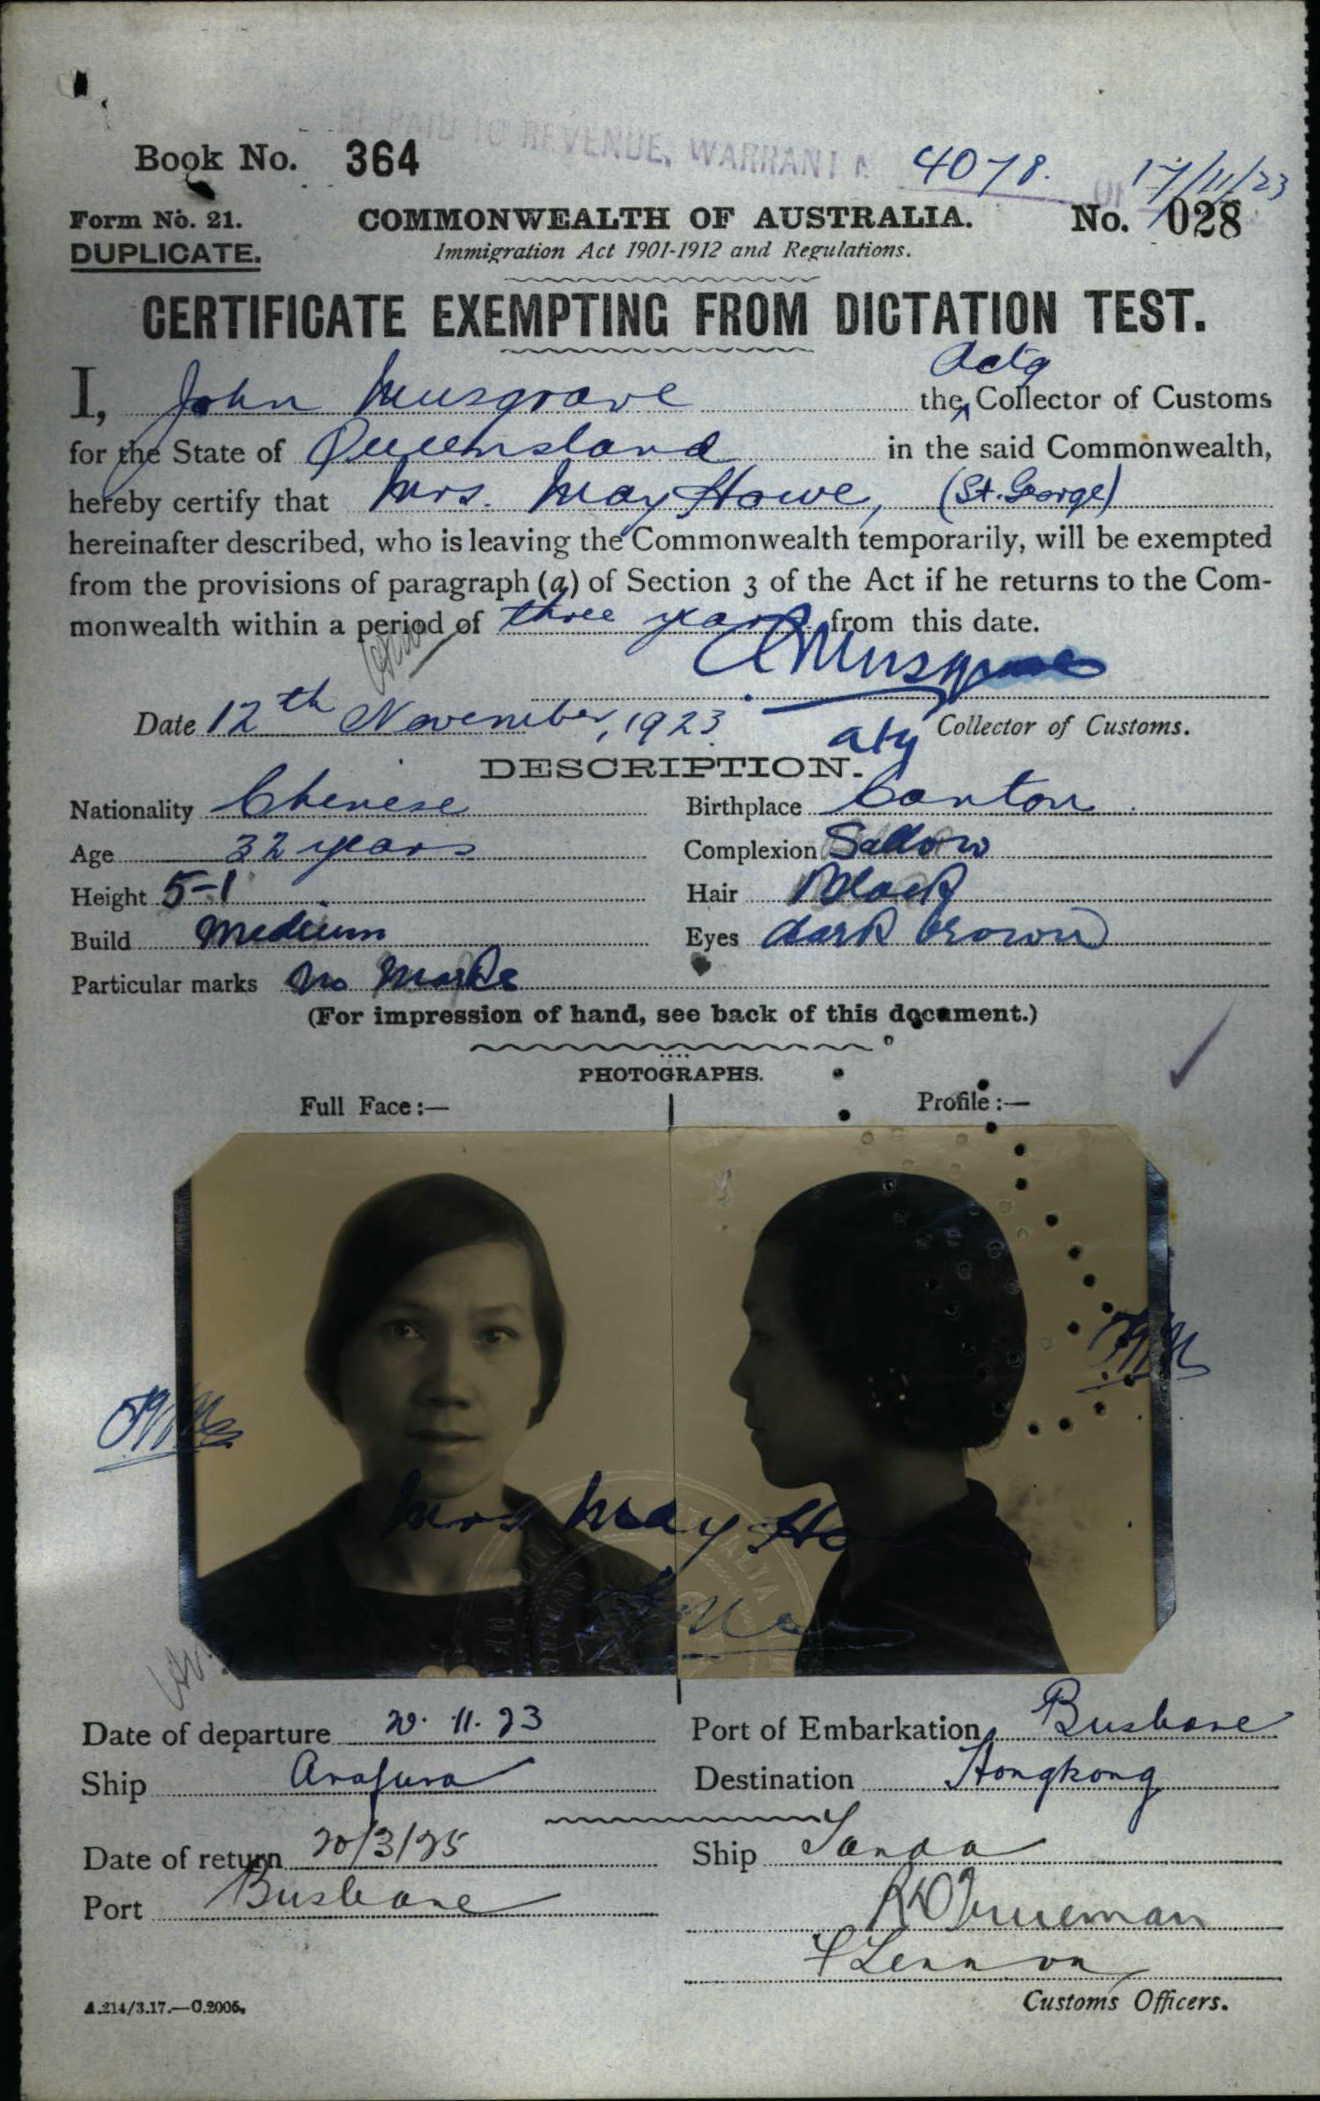 BE PAID TO REVENUE, WARRANT N 4078. OF 17/11/23
Book No. 364
Form No. 21. COMMONWEALTH OF AUSTRALIA. No. 028
DUPLICATE. Immigration Act 1901-1912 and Regulations.
CERTIFICATE EXEMPTING FROM DICTATION TEST.
Actg
I, John Musgrave the Collector of Customs
for the State of Queensland in the said Commonwealth,
hereby certify that Mrs. May Howe, (St. George)
hereinafter described, who is leaving the Commonwealth temporarily, will be exempted
from the provisions of paragraph (a) of Section 3 of the Act if he returns to the Com-
monwealth within a period of three years from this date.
Musgrave
Date 12th November, 1923 Collector of Customs.
DESCRIPTION.
Nationality Chinese Birthplace Canton
Age 32 years Complexion Sallow
Height 5-1 Hair Black
Build Medium Eyes dark brown
Particular marks No Marks
(For impression of hand, see back of this document.)
PHOTOGRAPHS.
Full Face:— Profile:—
Mrs May Ho
Date of departure 20.11.23 Port of Embarkation Brisbane
Ship Arafura Destination Hongkong
Date of return 20/3/25 Ship Tanda
Port Brisbane
Trueman
F Lennon
A.214/3.17.—C.2005. Customs Officers.